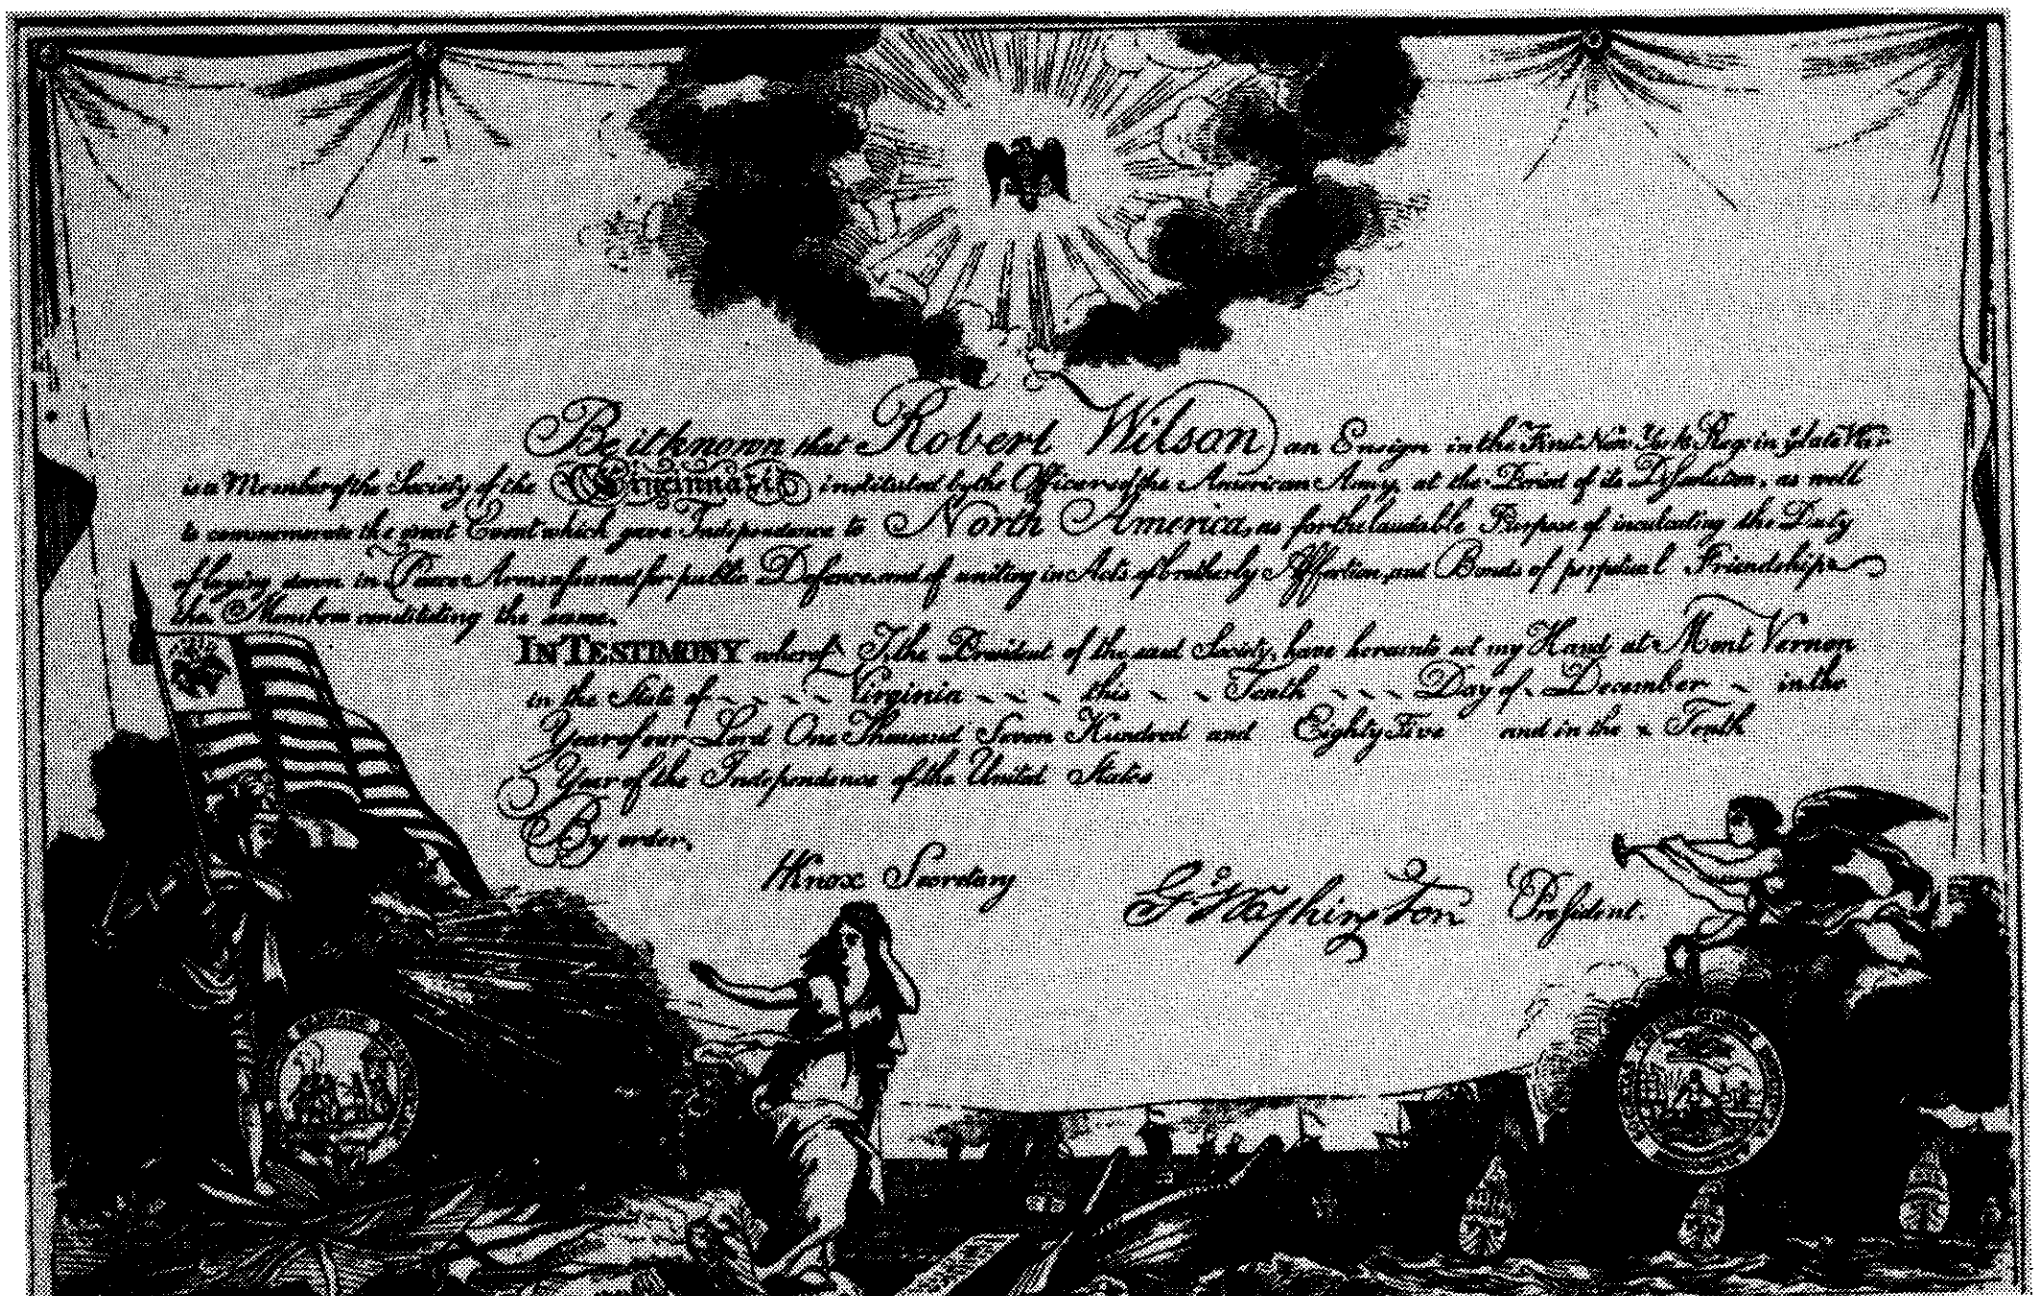 Be it known that Robert Wilson an Ensign in the First New York Reg in
is a Member of the Society of the Cincinnati instituted by the Officers of the American Army, at the Period of its Dissolution, as well
to commemorate the great Event which gave Independence to North America, as for the laudable Purpose of inculcating the Duty
of laying down in Peace Arms assumed for public Defence, and of uniting in Acts of brotherly Affection, and Bonds of perpetual Friendship
the Members constituting the same.
IN TESTIMONY whereof I, the President of the said Society, have hereunto set my Hand at Mont Vernon
in the State of Virginia this Tenth Day of December in the
Year of our Lord One Thousand Seven Hundred and Eighty Five and in the Tenth
Year of the Independence of the United States
By order,
HKnox Secretary
G:Washington President.